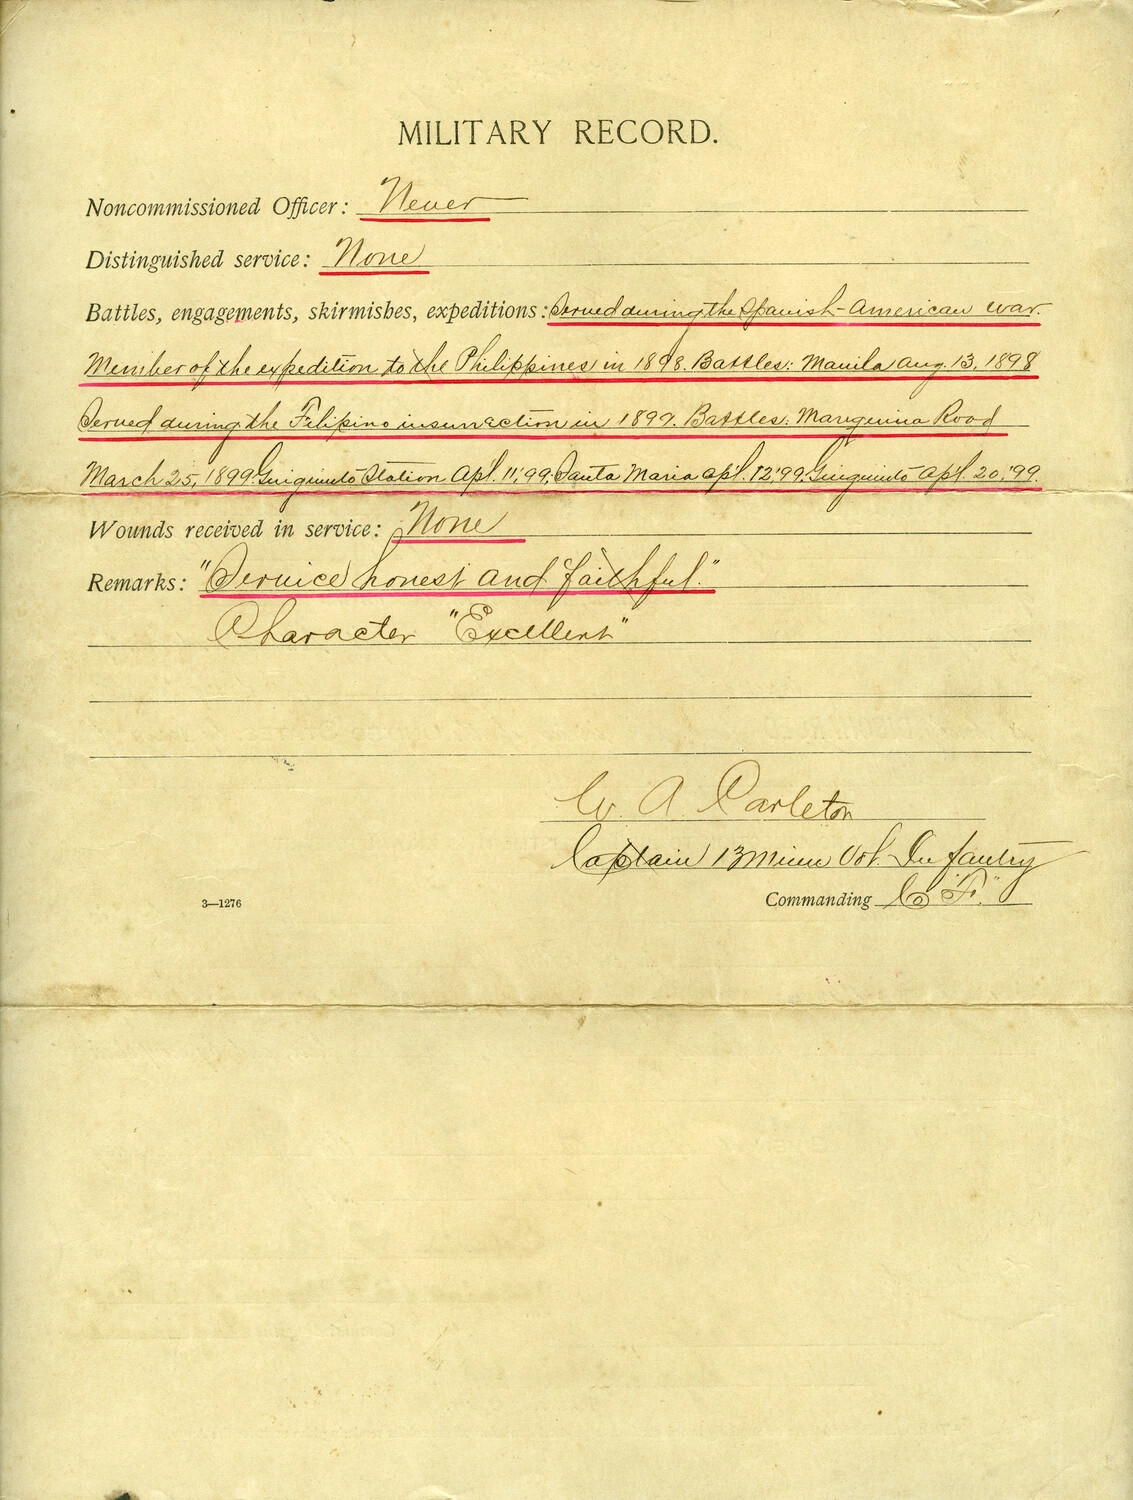 MILITARY RECORD.
Noncommissioned Officer: Never
Distinguished service: None
Battles, engagements, skirmishes, expeditions: Served during the Spanish-American war.
Member of the expedition to the Philippines in 1898. Battles: Manila Aug. 13, 1898
Served during the Filipino insurrection in 1899. Battles: Mariquina Road
March 25, 1899. Guiguinto Station Apl. 11,'99, Santa Maria Apl. 12,'99. Guiguinto Apl. 20,'99.
Wounds received in service: None
Remarks: "Service honest and faithful."
Character "Excellent"
W. A. Carleton
Captain 13 Minn Vol. Infantry
3—1276
Commanding Co "F."